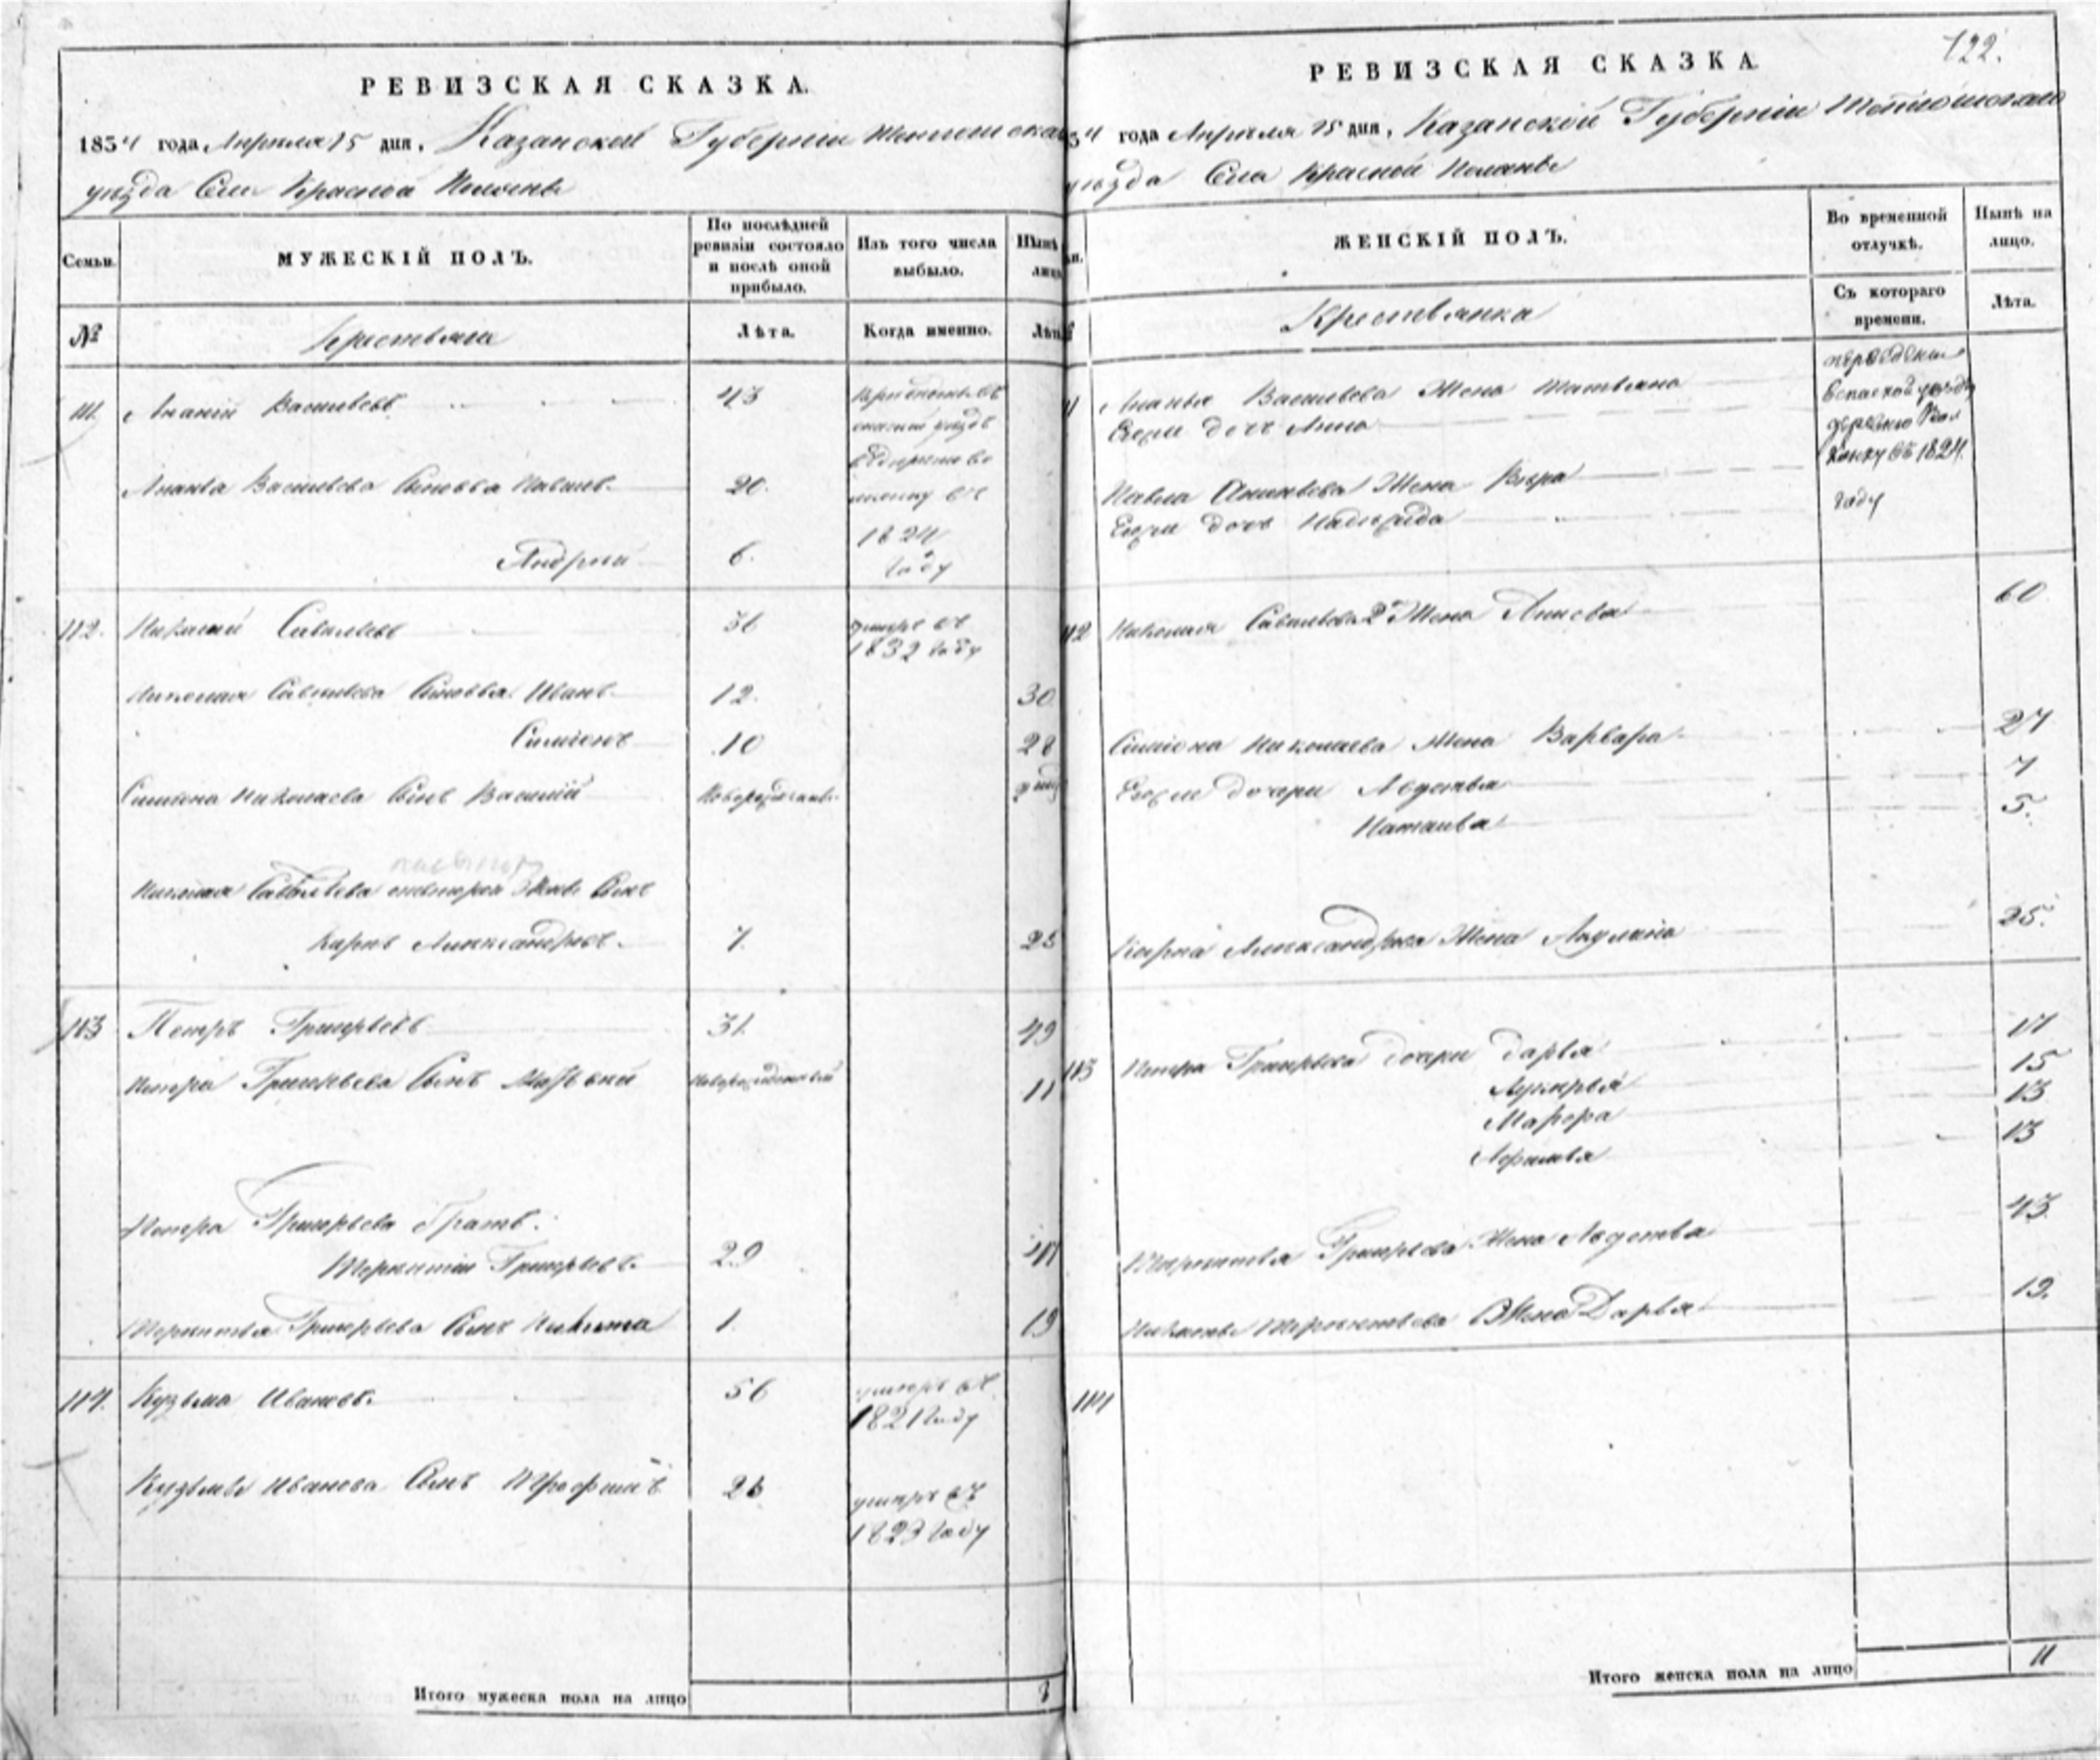 РЕВИЗСКАЯ СКАЗКА.
1834 года Апреля 25 дня, Казанской Губернии
уезда Села Красной Поляны
Семьи.
МУЖЕСКІЙ ПОЛЪ.
По послѣдней ревизіи состояло и послѣ оной прибыло.
Изъ того числа выбыло.
Нынѣ
№
Крестьяне
Лѣта.
Когда именно.
Лѣта
111. Ананий Васильевъ 43
Ананья Васильева Сыновья Павелъ 20.
1824 году
Андрей 6.
112. Николай Савельевъ 36 умеръ въ 1832 году
Николая Савельева Сыновья Иванъ 12. 30
Симионъ 10 28
Симиона Николаева Сынъ Василий Новорожденный
Николая Савельева Сынъ
Карпъ Александровъ 7. 25
113 Петръ Григорьевъ 31. 49
Петра Григорьева Сынъ новорожденный 11
Петра Григорьева братъ
Терентий Григорьевъ 29 47
Терентья Григорьева Сынъ Никита 1. 19
114. Кузьма Ивановъ 56 умеръ въ 1821 году
Кузьмы Иванова Сынъ Трофимъ умеръ въ 1823 году
Итого мужеска пола на лицо 8
РЕВИЗСКАЯ СКАЗКА.
122.
34 года Апреля 25 дня, Казанской Губернии
уезда Села Красной Поляны
ЖЕНСКІЙ ПОЛЪ.
Во временной отлучкѣ.
Нынѣ на лицо.
Крестьянки
Съ котораго времени.
Лѣта.
Ананья Васильева Жена Татьяна
Егоже дочь Анна
въ 1824
году
Павла Ананьева Жена Вера
Егоже дочь Надежда
112 Николая Савельева 2 Жена Анисья 60
Симиона Николаева Жена Варвара 27
Егоже дочери Авдотья 7
Наталья 5.
Карпа Александрова Жена Акулина 25.
113 Петра Григорьева дочери Дарья 17
Лукерья 15
Марфа 13
13
Терентья Григорьева Жена Авдотья 43.
Никиты Терентьева Жена Дарья 19.
114
Итого женска пола на лицо 11